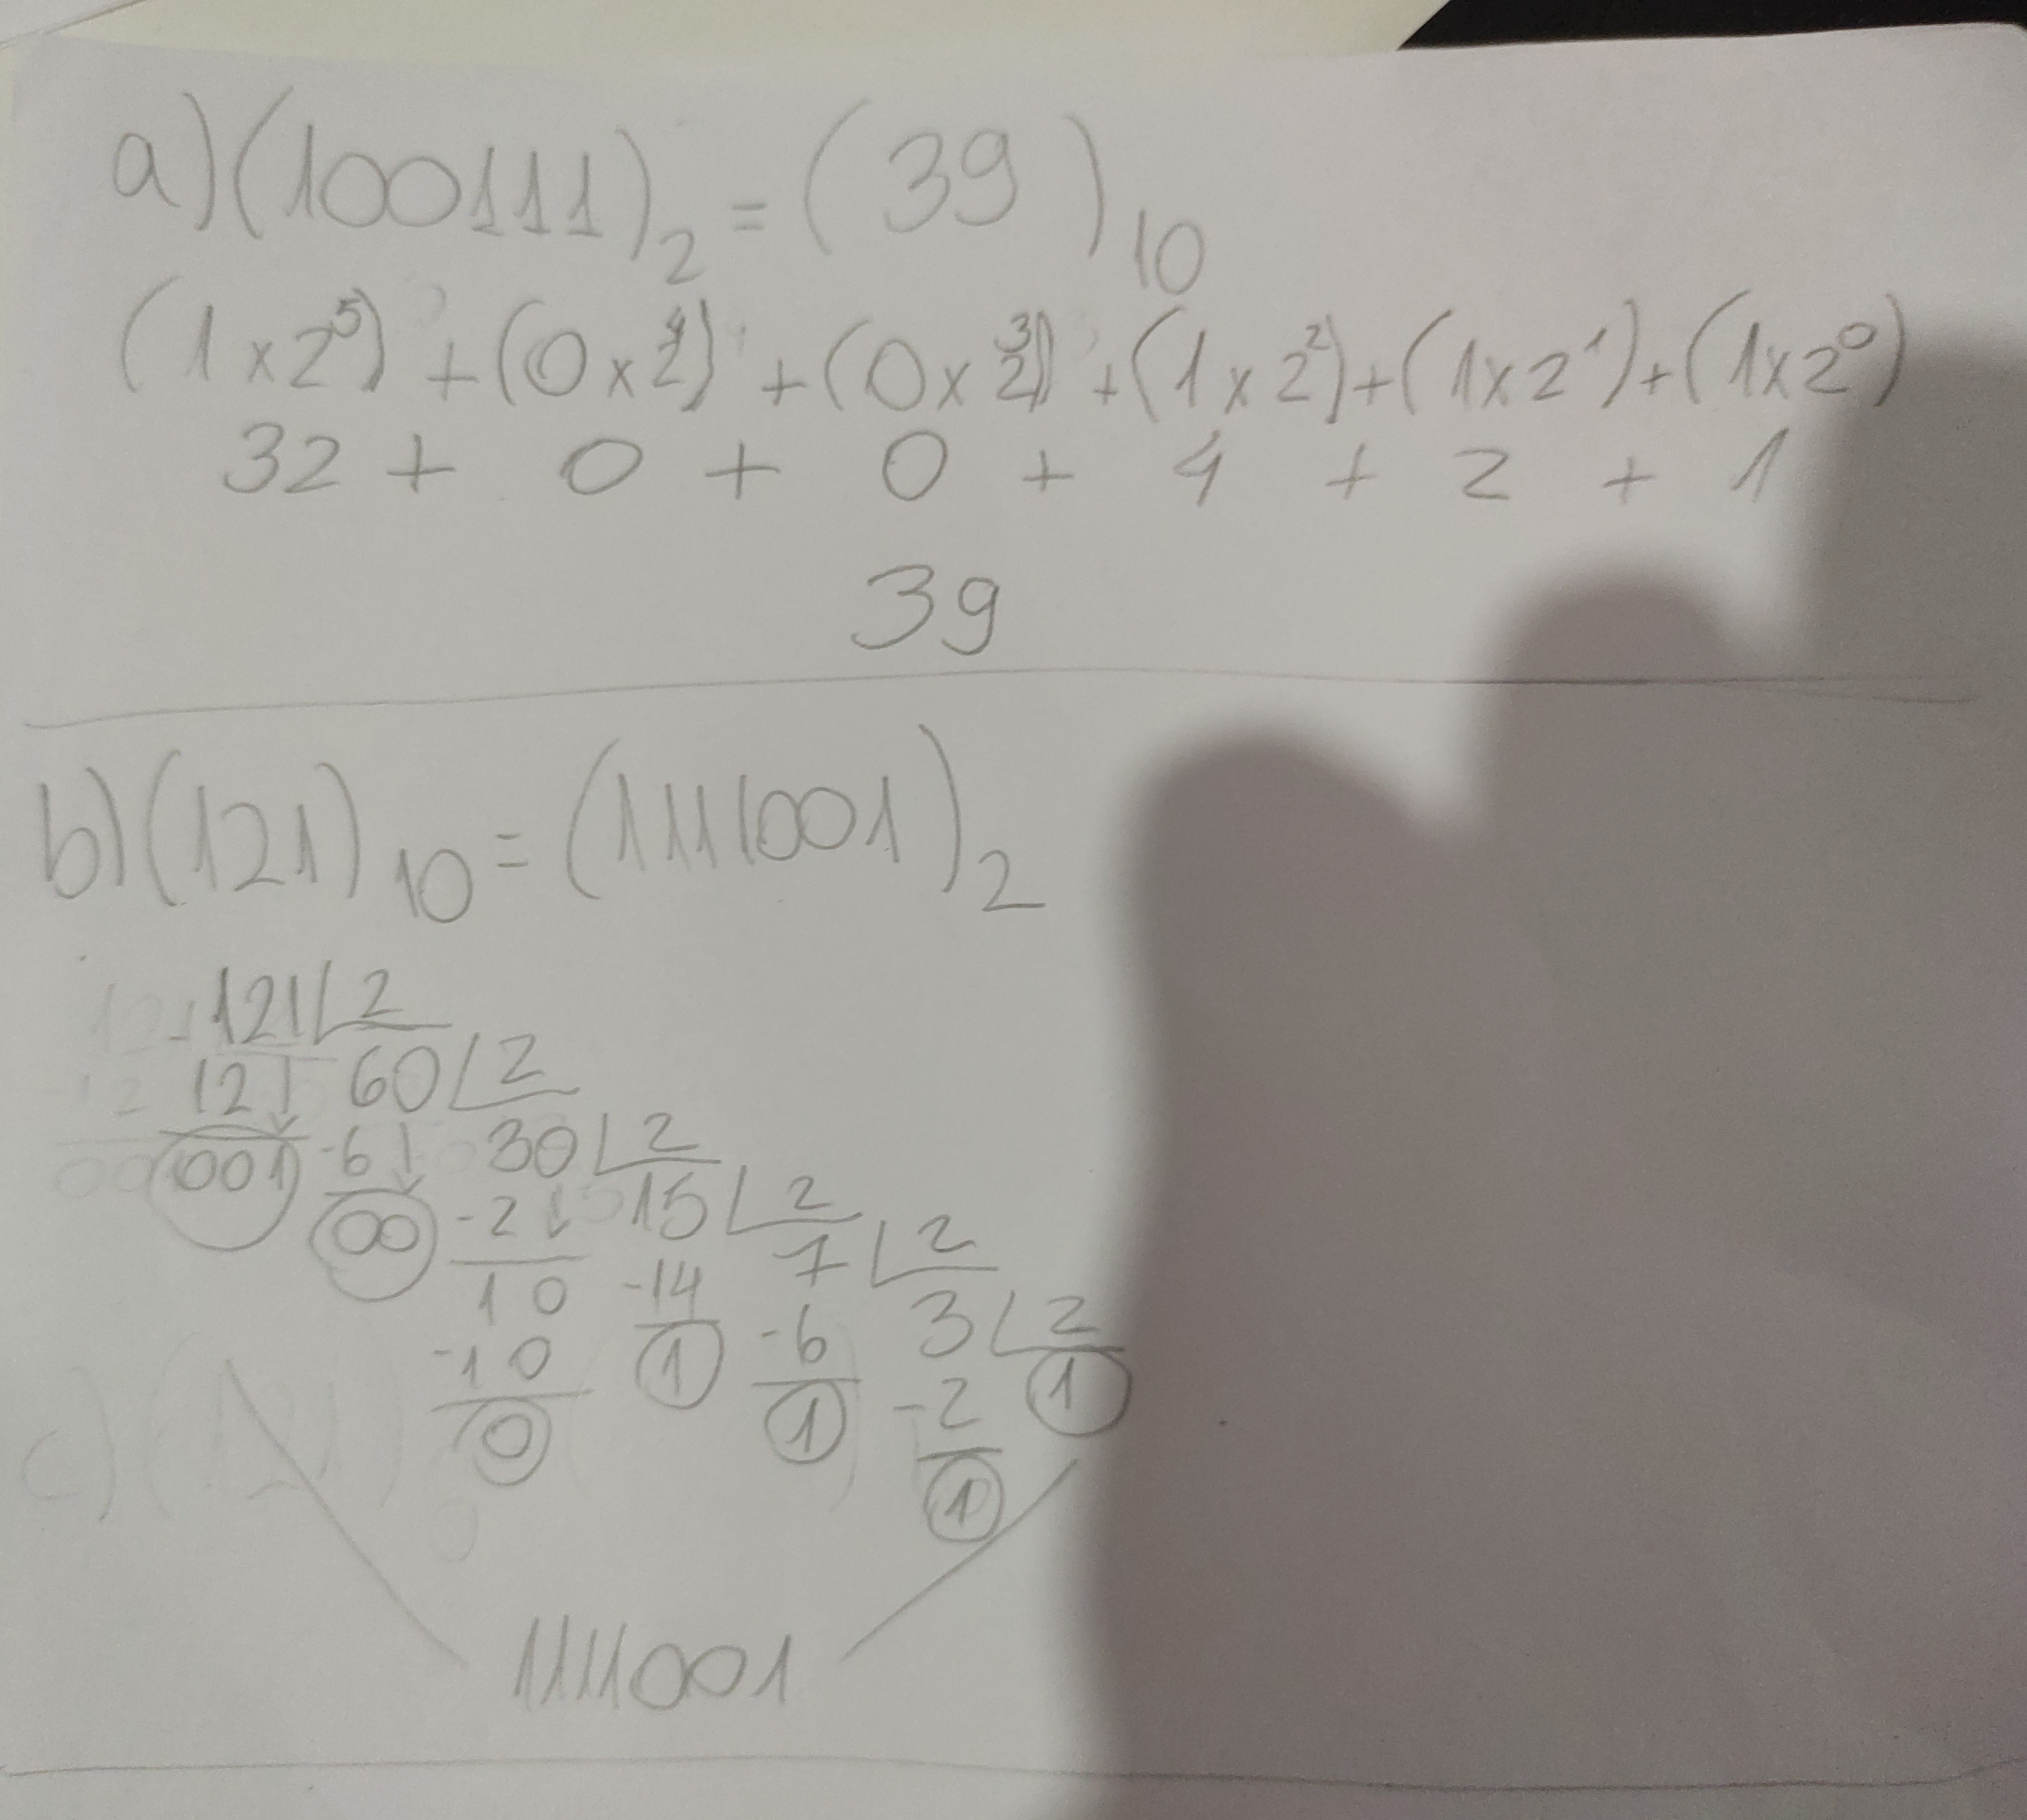 a) (100111)₂ = (39)₁₀
(1x2⁵) + (0x2⁴) + (0x2³) + (1x2²) + (1x2¹) + (1x2⁰)
32 + 0 + 0 + 4 + 2 + 1
39
b) (121)₁₀ = (1111001)₂
-121 2
121 60 2
001 -6 30 2
00 -2 15 2
10 -14 7 2
-10 1 -6 3 2
0 1 -2 1
1
c) (
1111001